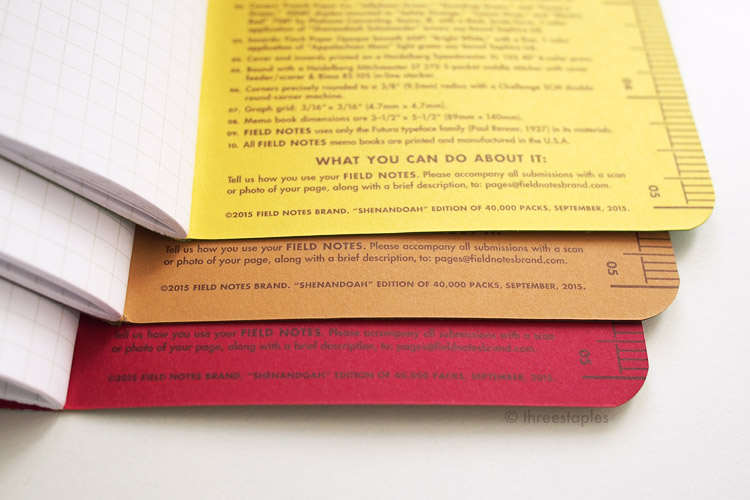 application of "Shenandoah
04. Cover and innards printed on a Heidelberg Speedmaster
05. Bound with a Heidelberg Stitchmaster ST 270 6-pocket saddle stitcher with cover
feeder/scorer & Rima RS 10S in-line stacker.
06. Corners precisely rounded to a 3/8" (9.5mm) radius with a Challenge SCM double
round-corner machine.
07. Graph grid: 3/16" × 3/16" (4.7mm × 4.7mm).
08. Memo book dimensions are 3-1/2" × 5-1/2" (89mm × 140mm).
09. FIELD NOTES uses only the Futura typeface family (Paul Renner, 1927) in its materials.
10. All FIELD NOTES memo books are printed and manufactured in the U.S.A.
WHAT YOU CAN DO ABOUT IT:
Tell us how you use your FIELD NOTES. Please accompany all submissions with a scan
or photo of your page, along with a brief description, to: pages@fieldnotesbrand.com.
©2015 FIELD NOTES BRAND. "SHENANDOAH" EDITION OF 40,000 PACKS, SEPTEMBER, 2015.
04
05
Tell us how you use your FIELD NOTES. Please accompany all submissions with a scan
or photo of your page, along with a brief description, to: pages@fieldnotesbrand.com.
©2015 FIELD NOTES BRAND. "SHENANDOAH" EDITION OF 40,000 PACKS, SEPTEMBER, 2015.
05
Tell us how you use your FIELD NOTES. Please accompany all submissions with a scan
or photo of your page, along with a brief description, to: pages@fieldnotesbrand.com.
©2015 FIELD NOTES BRAND. "SHENANDOAH" EDITION OF 40,000 PACKS, SEPTEMBER, 2015.
05
© threestaples